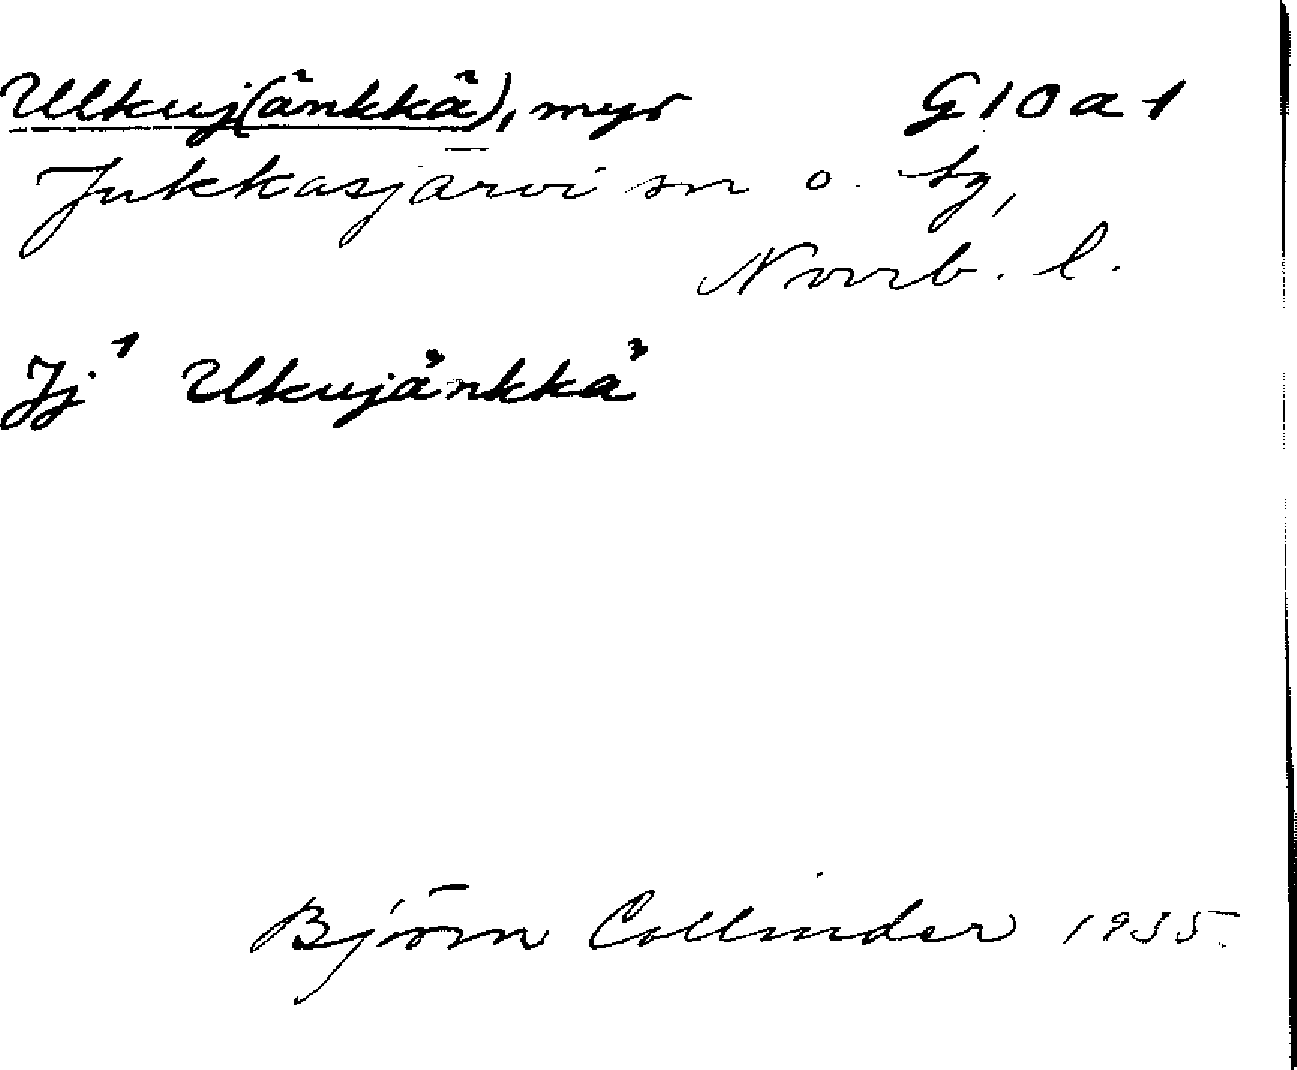 Ulkuj(änkkä), myr G10a1
Jukkasjärvi sn o. tg,
Norrb. l.
Jj¹ Ulkujänkkä
Björn Collinder 1935.